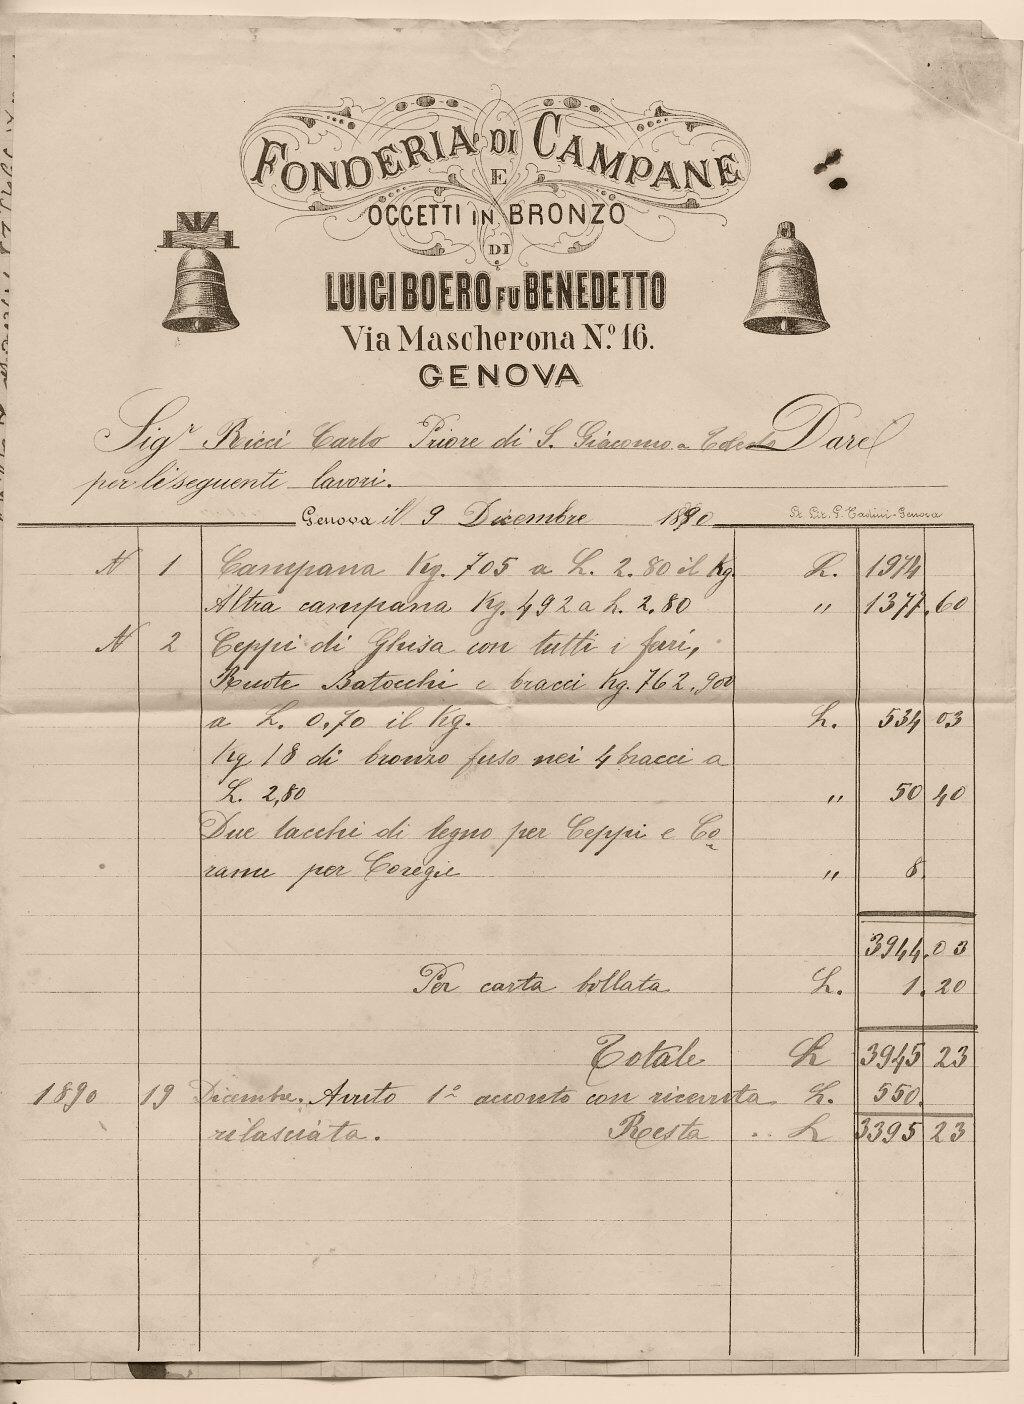 FONDERIA DI CAMPANE
E
OGGETTI IN BRONZO
DI
LUIGI BOERO FU BENEDETTO
Via Mascherona N.º 16.
GENOVA
Sigr Ricci Carlo Priore di S. Giacomo a Dare
per li seguenti lavori.
Genova il 9 Dicembre 1890
N 1 Campana Kg. 705 a L. 2.80 il Kg. L. 1974
Altra campana Kg. 492 a L. 2.80 " 1377.60
N 2 Ceppi di Ghisa con tutti i feri,
Ruote Batocchi e bracci Kg. 762.900
a L. 0,70 il Kg. L. 534 03
Kg 18 di bronzo fuso nei 4 bracci a
L. 2,80 " 50 40
Due tacchi di legno per Ceppi e Co
rame per Coregie " 8.
3944.03
Per carta bollata L. 1.20
Totale L 3945 23
1890 19 Dicembre. Avuto 1º acconto con ricevuta L. 550.
rilasciata. Resta L 3395 23